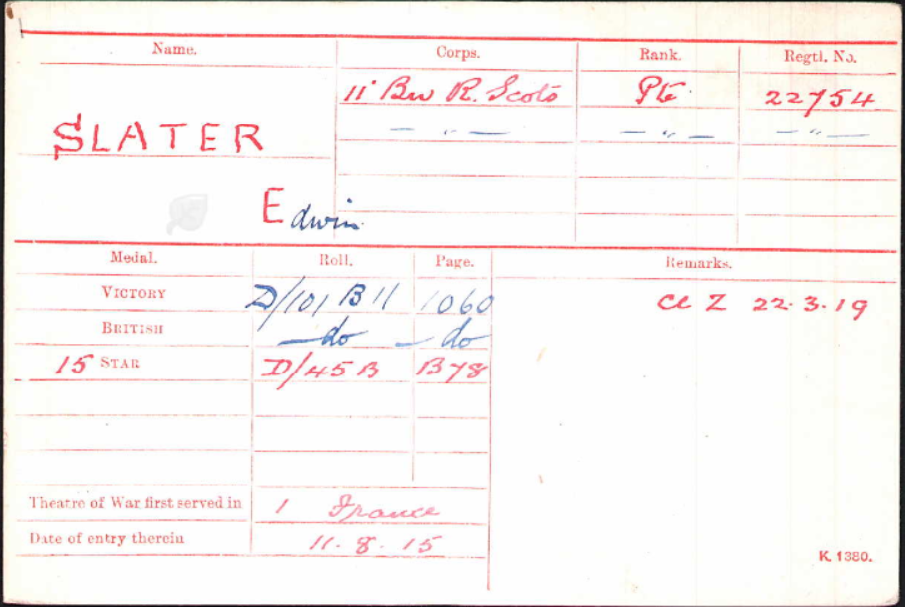 Name. Corps. Rank. Regtl. No.
11 Bn R. Scots Pte 22754
— " — — " — — " —
SLATER
Edwin
Medal. Roll. Page. Remarks.
VICTORY D/101 B11 1060 Cl Z 22.3.19
BRITISH —do —do
15 STAR D/45 B B78
Theatre of War first served in 1 France
Date of entry therein 11.8.15
K. 1380.